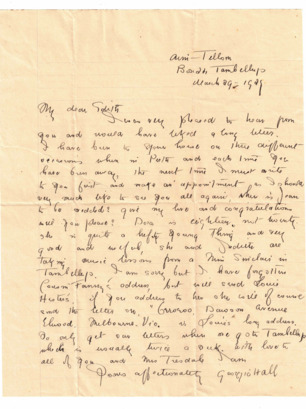 March 29 - 1929
My dear Edith
I was very pleased to hear from
you and would have liked a long letter.
I have been to your house on three different
occasions when in Perth and each time you
have been away. The next time I must write
to you first and make an appointment, as I should
very much like to see you all again. When is Jean
to be married? give my love and congratulations
will you please? Dora is eighteen, not twenty
she is quite a hefty young thing and very
good and useful, she and
taking music lessons from a Mrs Sinclair in
Tambellup. I am sorry but I have forgotten
Cousin Fanny's address but will send Louie
if you address to her she will of course
send the letter on. Avenue
Elwood Melbourne. Vic. is Louie's long address.
We only get our letters when we go to Tambellup
which is usually twice a week with love to
all of you and Mrs I am
Yours affectionately Hall